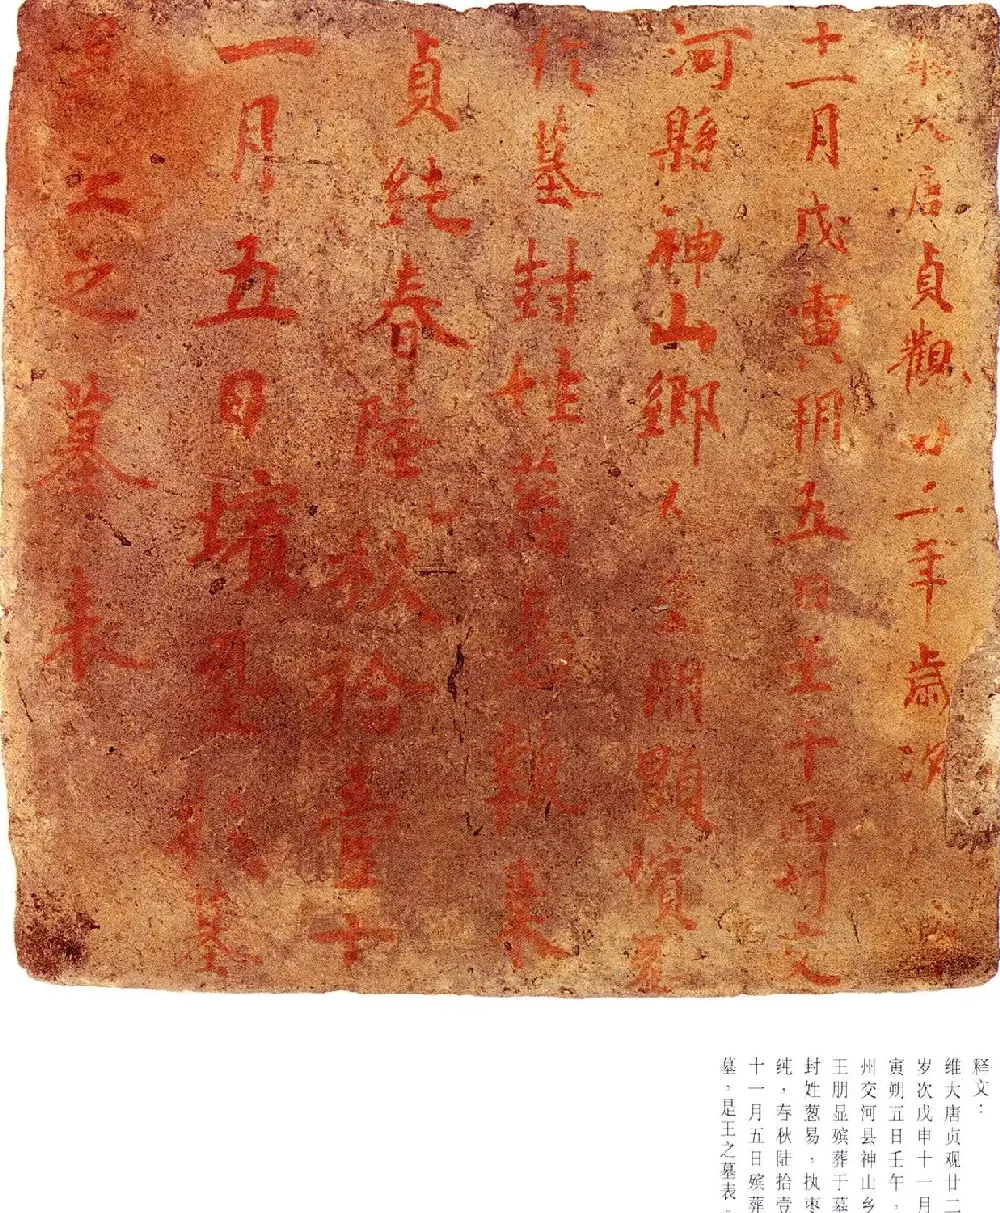 維大唐貞觀廿二年歲次
十一月戊寅朔五日壬午西州交
河縣神山鄉人王朋顯殯葬
於墓封姓蔥易執棗
貞純春陸秋拾壹十
一月五日殯葬於墓
是王之墓表
释文：
维大唐贞观廿二
岁次戊申十一月
寅朔五日壬午，
州交河县神山乡
王朋显殡葬于墓
封姓葱易，执枣
纯，春秋陆拾壹
十一月五日殡葬
墓，是王之墓表。